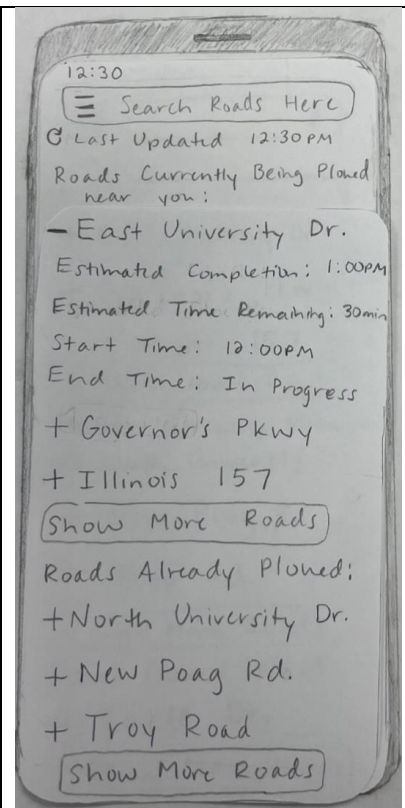 12:30
Search Roads Here
Last Updated 12:30PM
Roads Currently Being Plowed
near you:
- East University Dr.
Estimated Completion: 1:00PM
Estimated Time Remaining: 30min
Start Time: 12:00PM
End Time: In Progress
+ Governor's PKwy
+ Illinois 157
Show More Roads
Roads Already Plowed:
+ North University Dr.
+ New Poag Rd.
+ Troy Road
Show More Roads